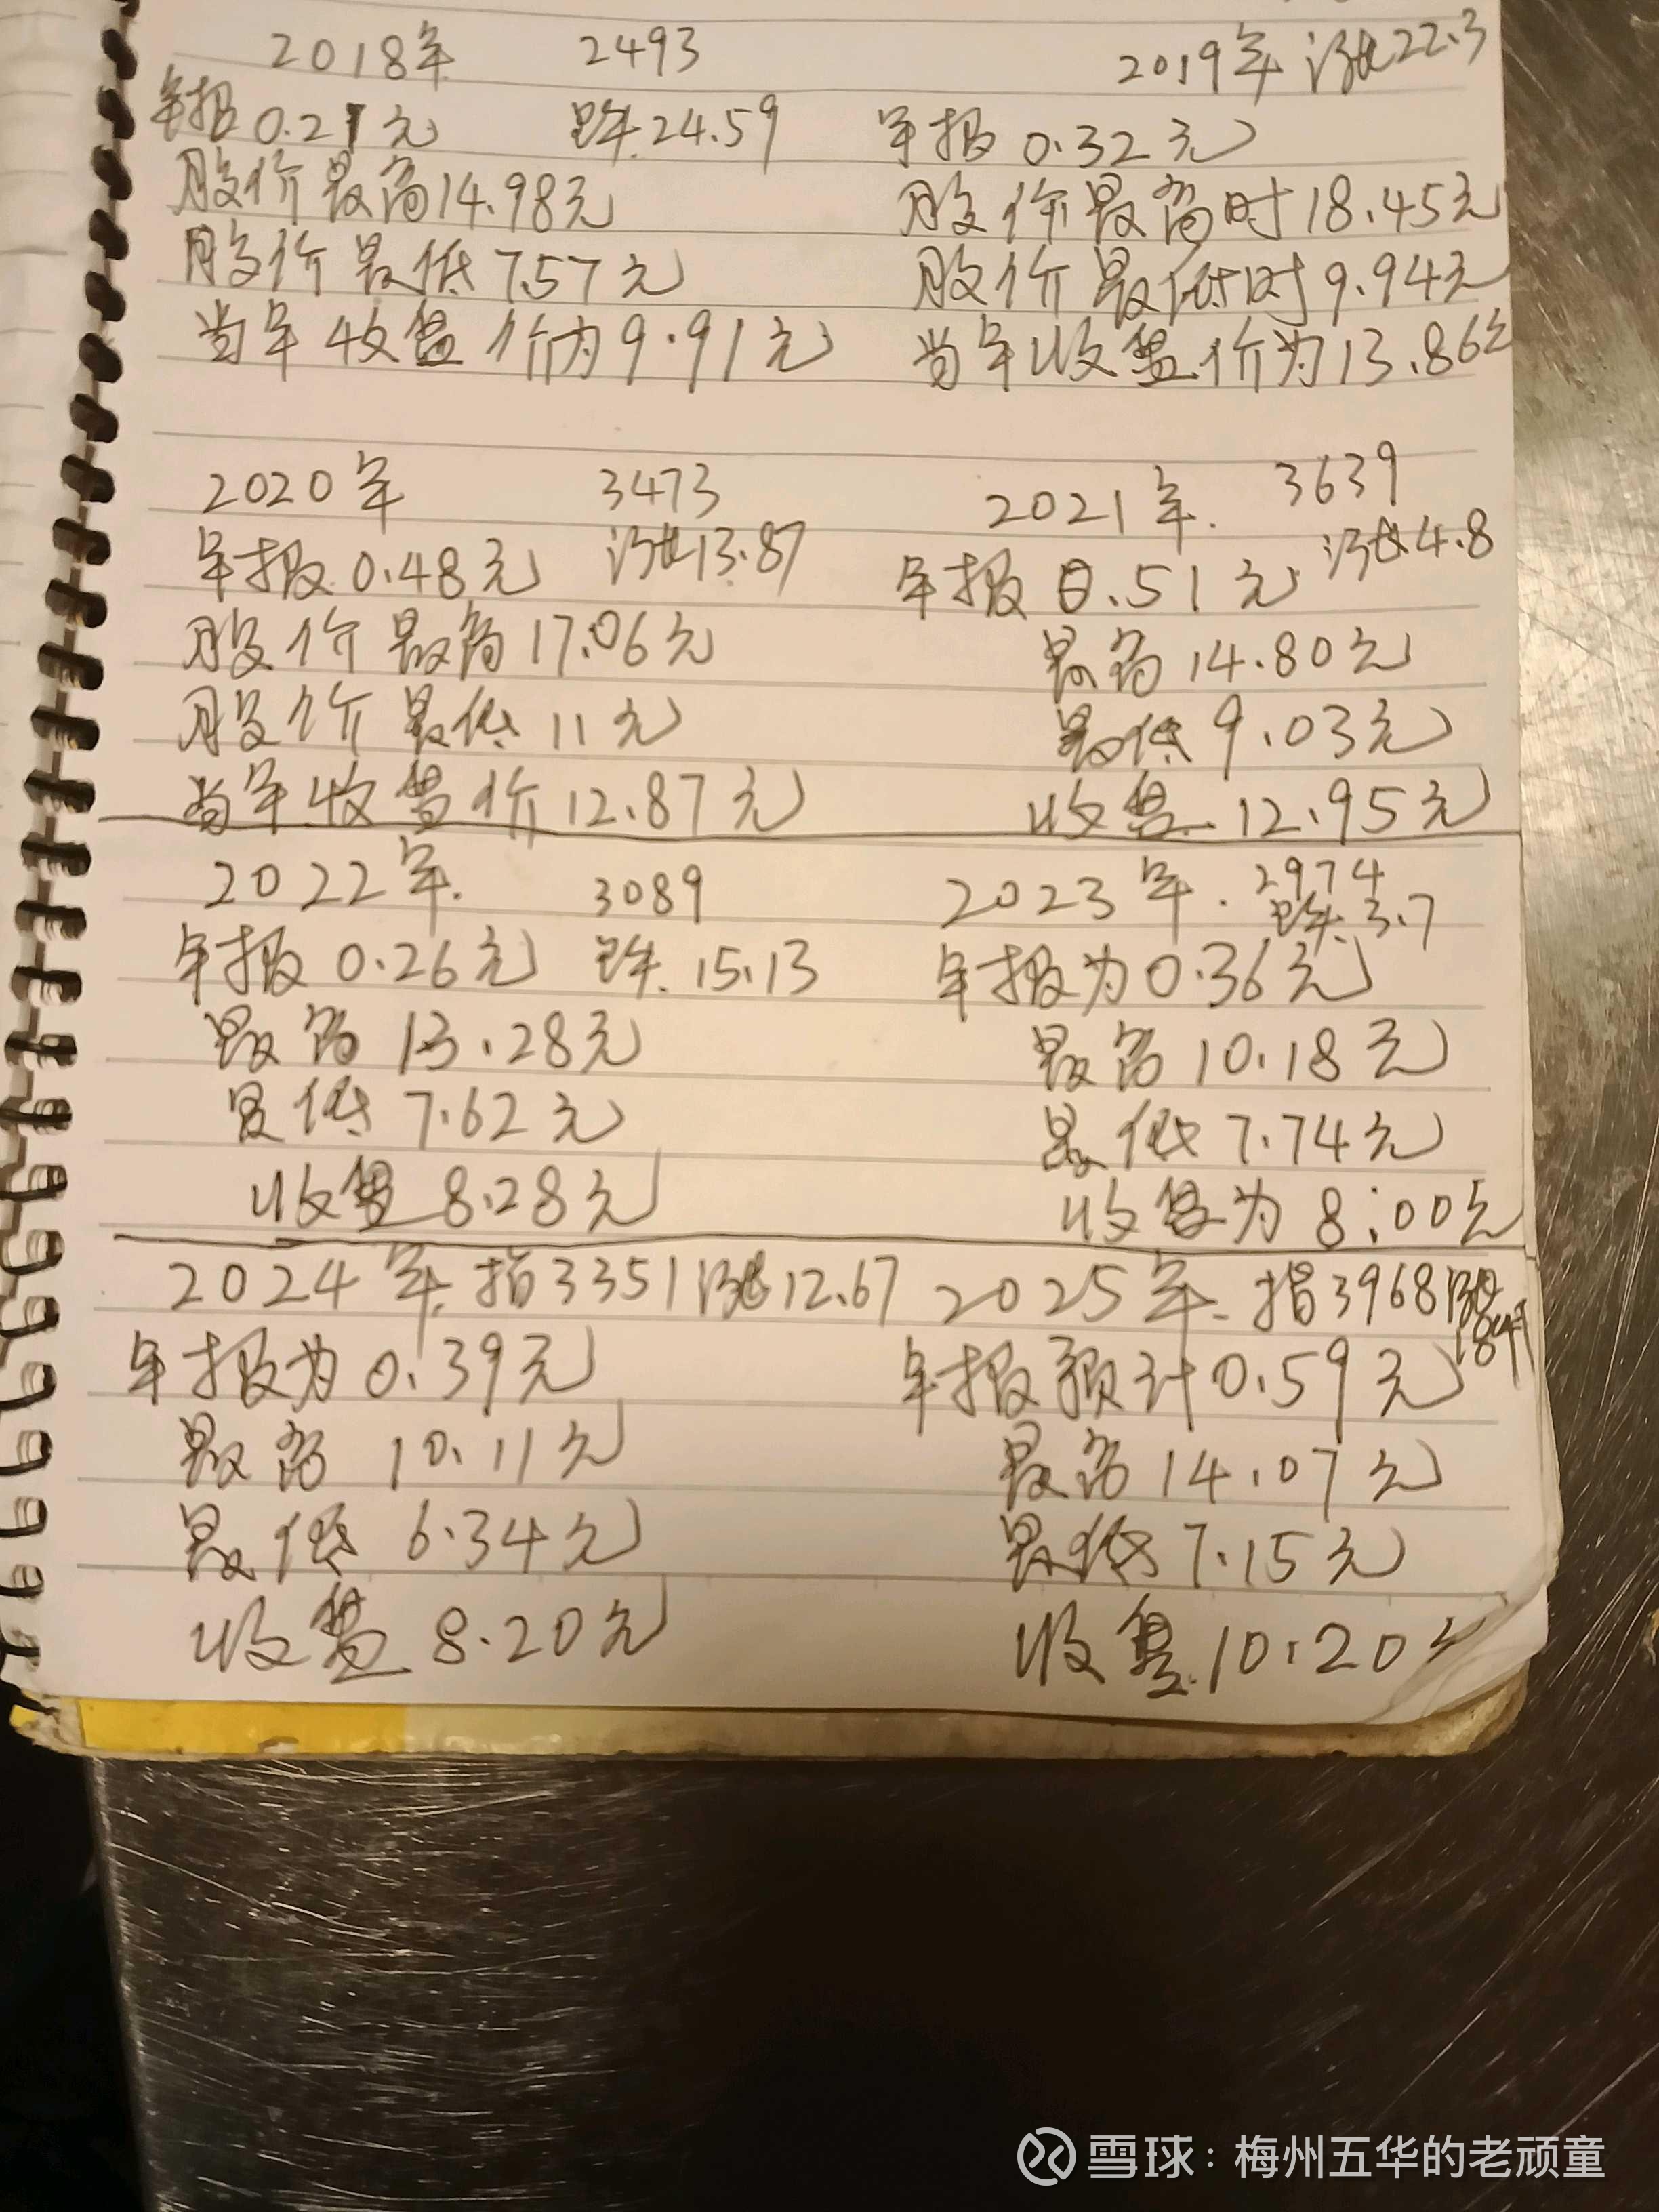 2018年 2493
年报0.21元 跌.24.59
股价最高14.98元
股价最低7.57元
当年收盘价为9.91元
2019年 涨22.3
年报0.32元
股价最高时18.45元
股价最低时9.94元
当年收盘价为13.86元
2020年 3473
年报0.48元 涨13.87
股价最高17.06元
股价最低11元
当年收盘价12.87元
2021年. 3639
年报0.51元 涨4.8
最高14.80元
最低9.03元
收盘.12.95元
2022年. 3089
年报0.26元 跌.15.13
最高13.28元
最低7.62元
收盘8.28元
2023年. 2974
跌.3.7
年报为0.36元
最高10.18元
最低7.74元
收盘为8:00元
2024年.指3351涨12.67
年报为0.39元
最高10.11元
最低6.34元
收盘8.20元
2025年.指3968
年报预计0.59元
最高14.07元
最低7.15元
收盘.10.20元
雪球：梅州五华的老顽童